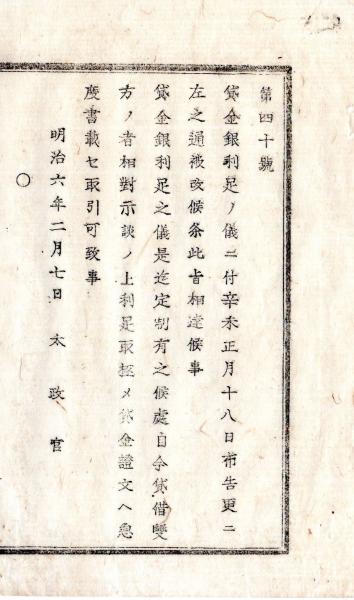 第四十號
貸金銀利足ノ儀ニ付辛未正月十八日布告更ニ
左之通被改候条此旨相達候事
貸金銀利足之儀是迄定制有之候處自今貸借雙
方ノ者相對示談ノ上利足取極メ貸金證文ヘ急
度書載セ取引可致事
明治六年二月七日 太政官
○